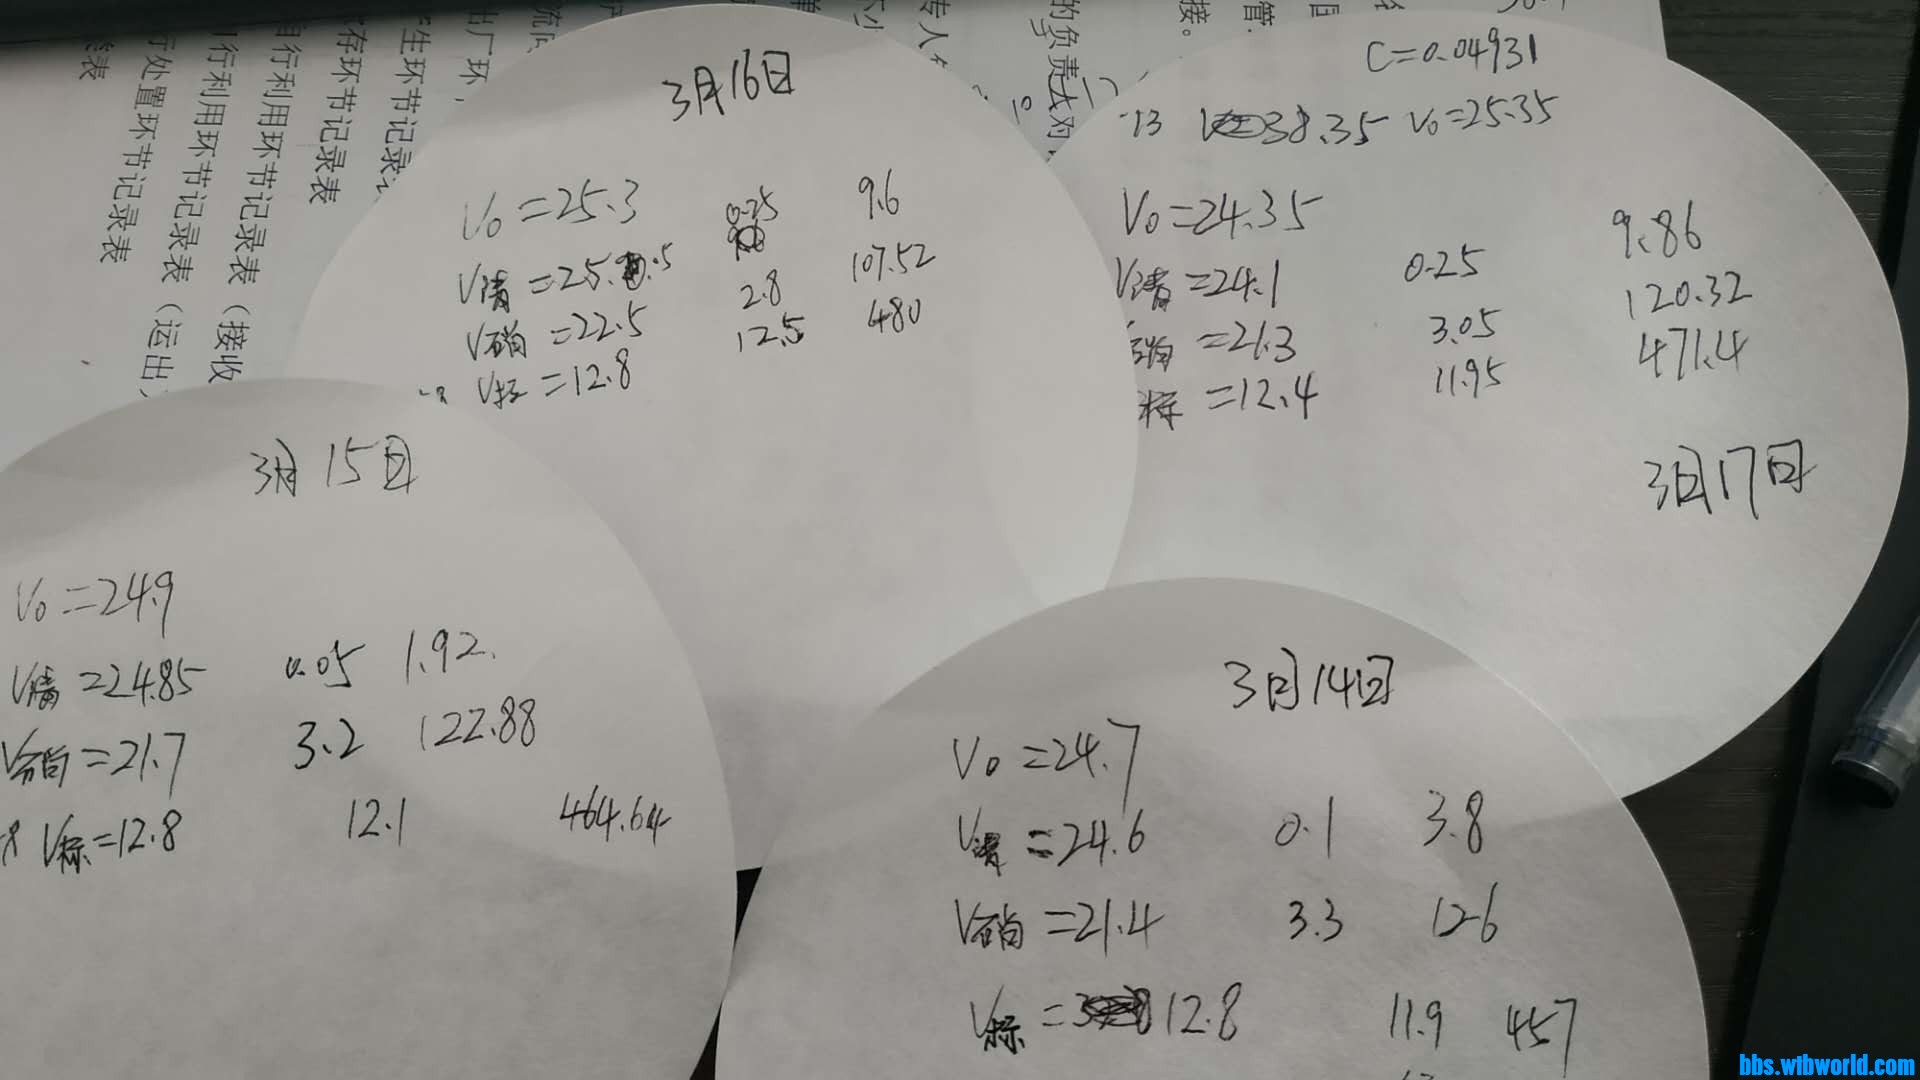 3月16日
V0=25.3
V清=25.05 0.25 9.6
V硝=22.5 2.8 107.52
V标=12.8 12.5 480
C=0.04931
38.35 V0=25.35
V0=24.35
V清=24.1 0.25 9.86
硝=21.3 3.05 120.32
标=12.4 11.95 471.4
3月17日
3月15日
V0=24.9
V清=24.85 0.05 1.92
V硝=21.7 3.2 122.88
V标=12.8 12.1 464.64
3月14日
V0=24.7
V清=24.6 0.1 3.8
V硝=21.4 3.3 126
V标=12.8 11.9 457
的负责
接。
管
流向
出厂环
生环节记录
存环节记录表
自行利用环节记录表
行利用环节记录表（接收
行处置环节记录表（运出
bbs.wtbworld.com